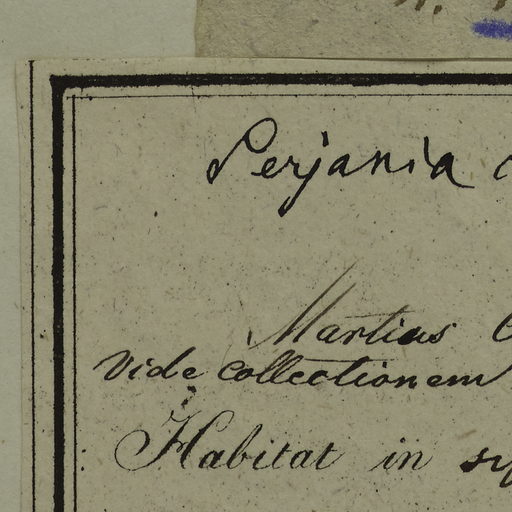 Perjania
Martius
Vide collectionem
Habitat in